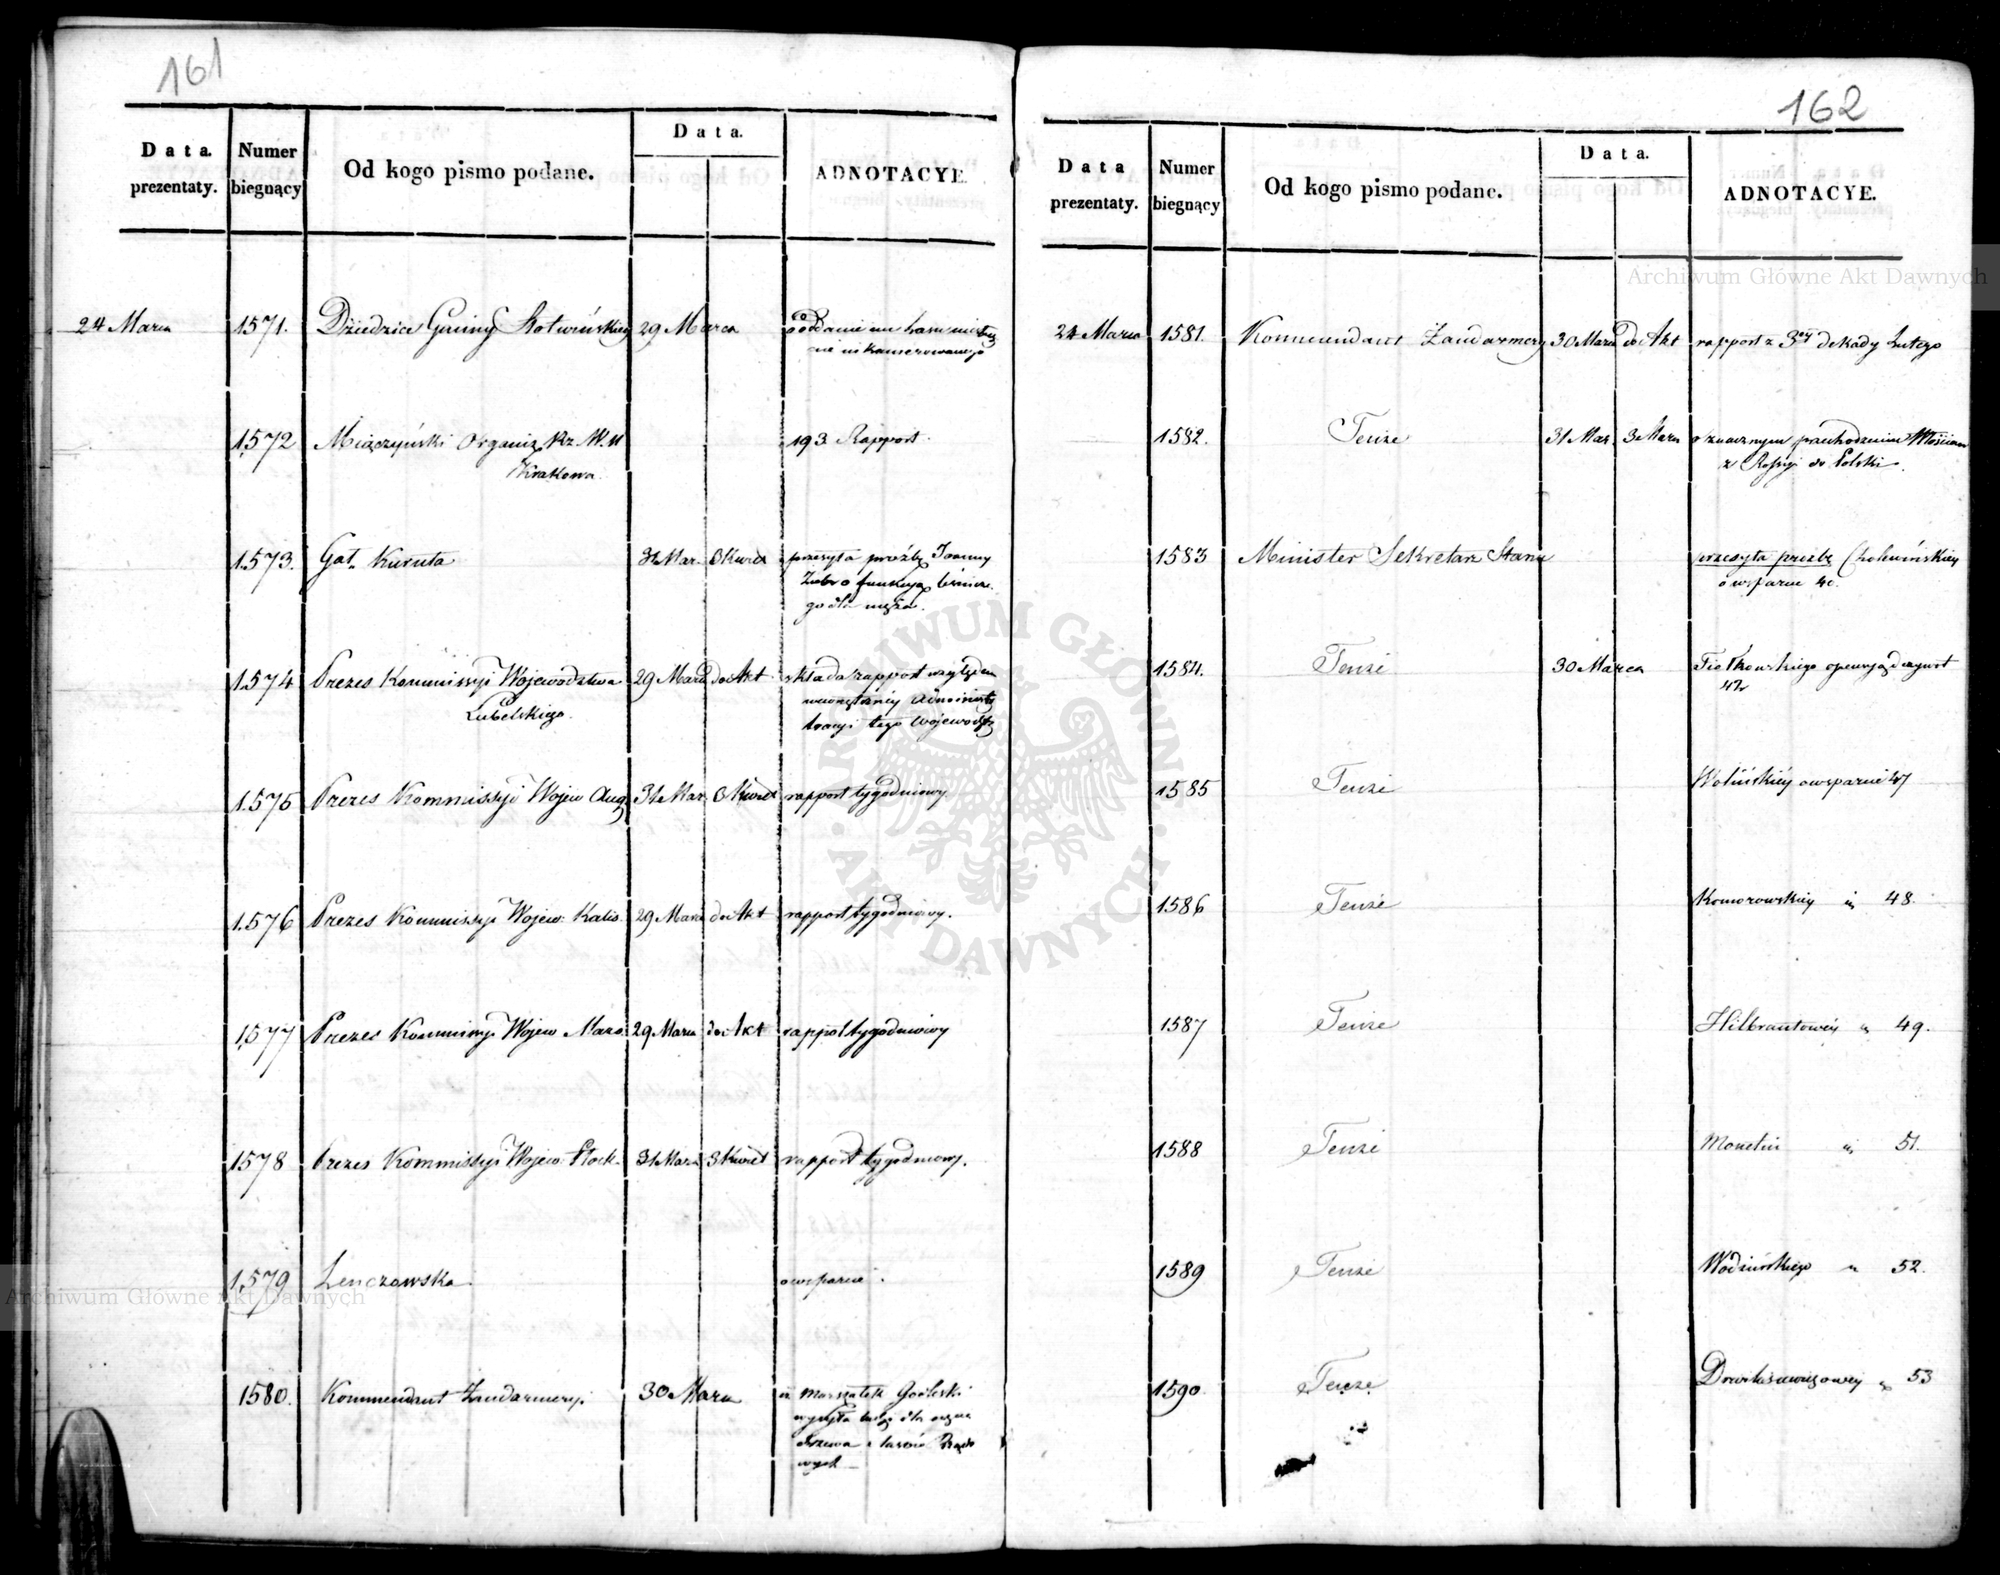 161
Data. prezentaty.
Numer biegnący
Od kogo pismo podane.
Data.
ADNOTACYE.
24 Marca 1571. Dziedzice Gminy 29 Marca o oddanie im
1572 Miączyński Organiz 193 Rapport.
Krakowa.
1573. Gał. Kuruta 31 Mar. 3 Kwiet przesyła proźbę Joanny
go dla męża.
1574 Prezes Kommissyi Województwa 29 Marca do Akt składa rapport względem
Lubelskiego. wewnętrznéy Adminis
tracyi tego Wojewodz
1575 Prezes Kommissyi Wojew Aug 31 Mar. 3 Kwiet rapport tygodniowy
1576 Prezes Kommissyi Wojew: Kalis. 29 Marca do Akt rapport tygodniowy.
1577 Prezes Kommissyi Wojew Mazo: 29 Marca do Akt rapport tygodniowy
1578 Prezes Kommissyi Wojew: Płock. 31 Marca 3 Kwiet rapport tygodniowy.
1579 Lenczewska o wsparcie.
1580. Kommendant Żandarmeryi 30 Marca iż Marszałek
drzewa z lasów Rządo
wych
162
Data prezentaty.
Numer biegnący
Od kogo pismo podane.
Data.
ADNOTACYE.
24 Marca 1581. Kommendant Żandarmery 30 Marca do Akt rapport z 3ej dekady Lutego
1582. Tenże 31 Mar. 3 Marca o znacznym przechodzeniu Włościan
z Rossyi do Polski.
1583 Minister Sekretarz Stanu przesyła prożbę Cholewińskiey
o wsparcie 40.
1584. Tenże 30 Marca
42
1585 Tenże Wolińskiéy o wsparcie 47
1586 Tenże Komorowskiey " 48.
1587 Tenże Hilbrantowéy " 49.
1588 Tenże " 51.
1589 Tenże Wodzińskiego " 52.
1590. Tenże " 53
Archiwum Główne Akt Dawnych
Archiwum Główne Akt Dawnych
ARCHIWUM GŁÓWNE · AKT DAWNYCH ·